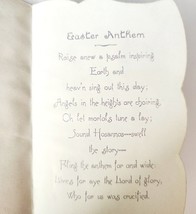 Easter Anthem
Raise anew a psalm inspiring
Earth and
heav'n sing out this day;
Angels in the heights are choiring,
Oh let mortals tune a lay;
Sound Hosannas—swell
the story—
Filling the anthem far and wide;
Hymns for aye the Lord of glory,
Who for us was crucified.